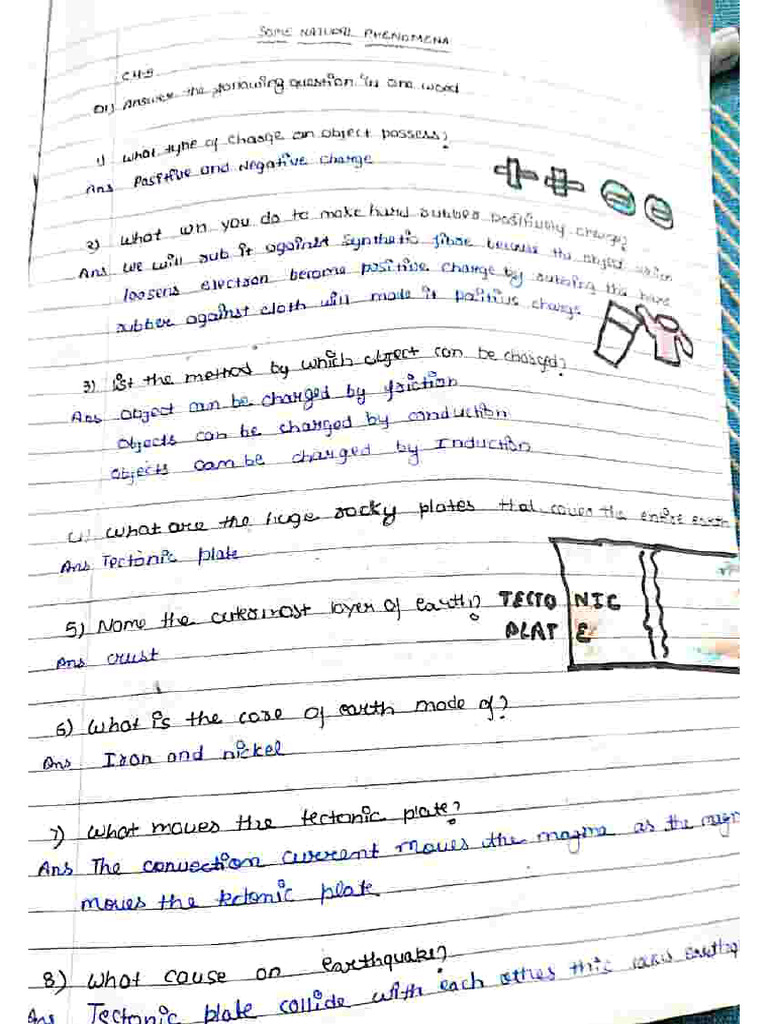 SOME NATURAL PHENOMENA
CH-9
Q1) Answer the following question in one word
1) What type of charge an object possess?
Ans Positive and Negative charge
2) What wn you do to make hard rubber positively charge?
Ans we will rub it against synthetic fibre because the object which
loosens electron become positive charge by rubbing the hard
rubber against cloth will made it positive charge
3) list the method by which object can be charged?
Ans Object can be charged by friction
Objects can be charged by conduction
Objects can be charged by Induction
4) What are the huge rocky plates that cover the entire earth
Ans Tectonic plate
TECTO NIC
PLAT E
5) Name the outermost layer of earth?
Ans crust
6) What is the core of earth made of?
Ans Iron and nickel
7) What moves the tectonic plate?
Ans The convection current moves the magma as the magm
moves the tectonic plate
8) What cause an earthquake?
Ans Tectonic plate collide with each other this